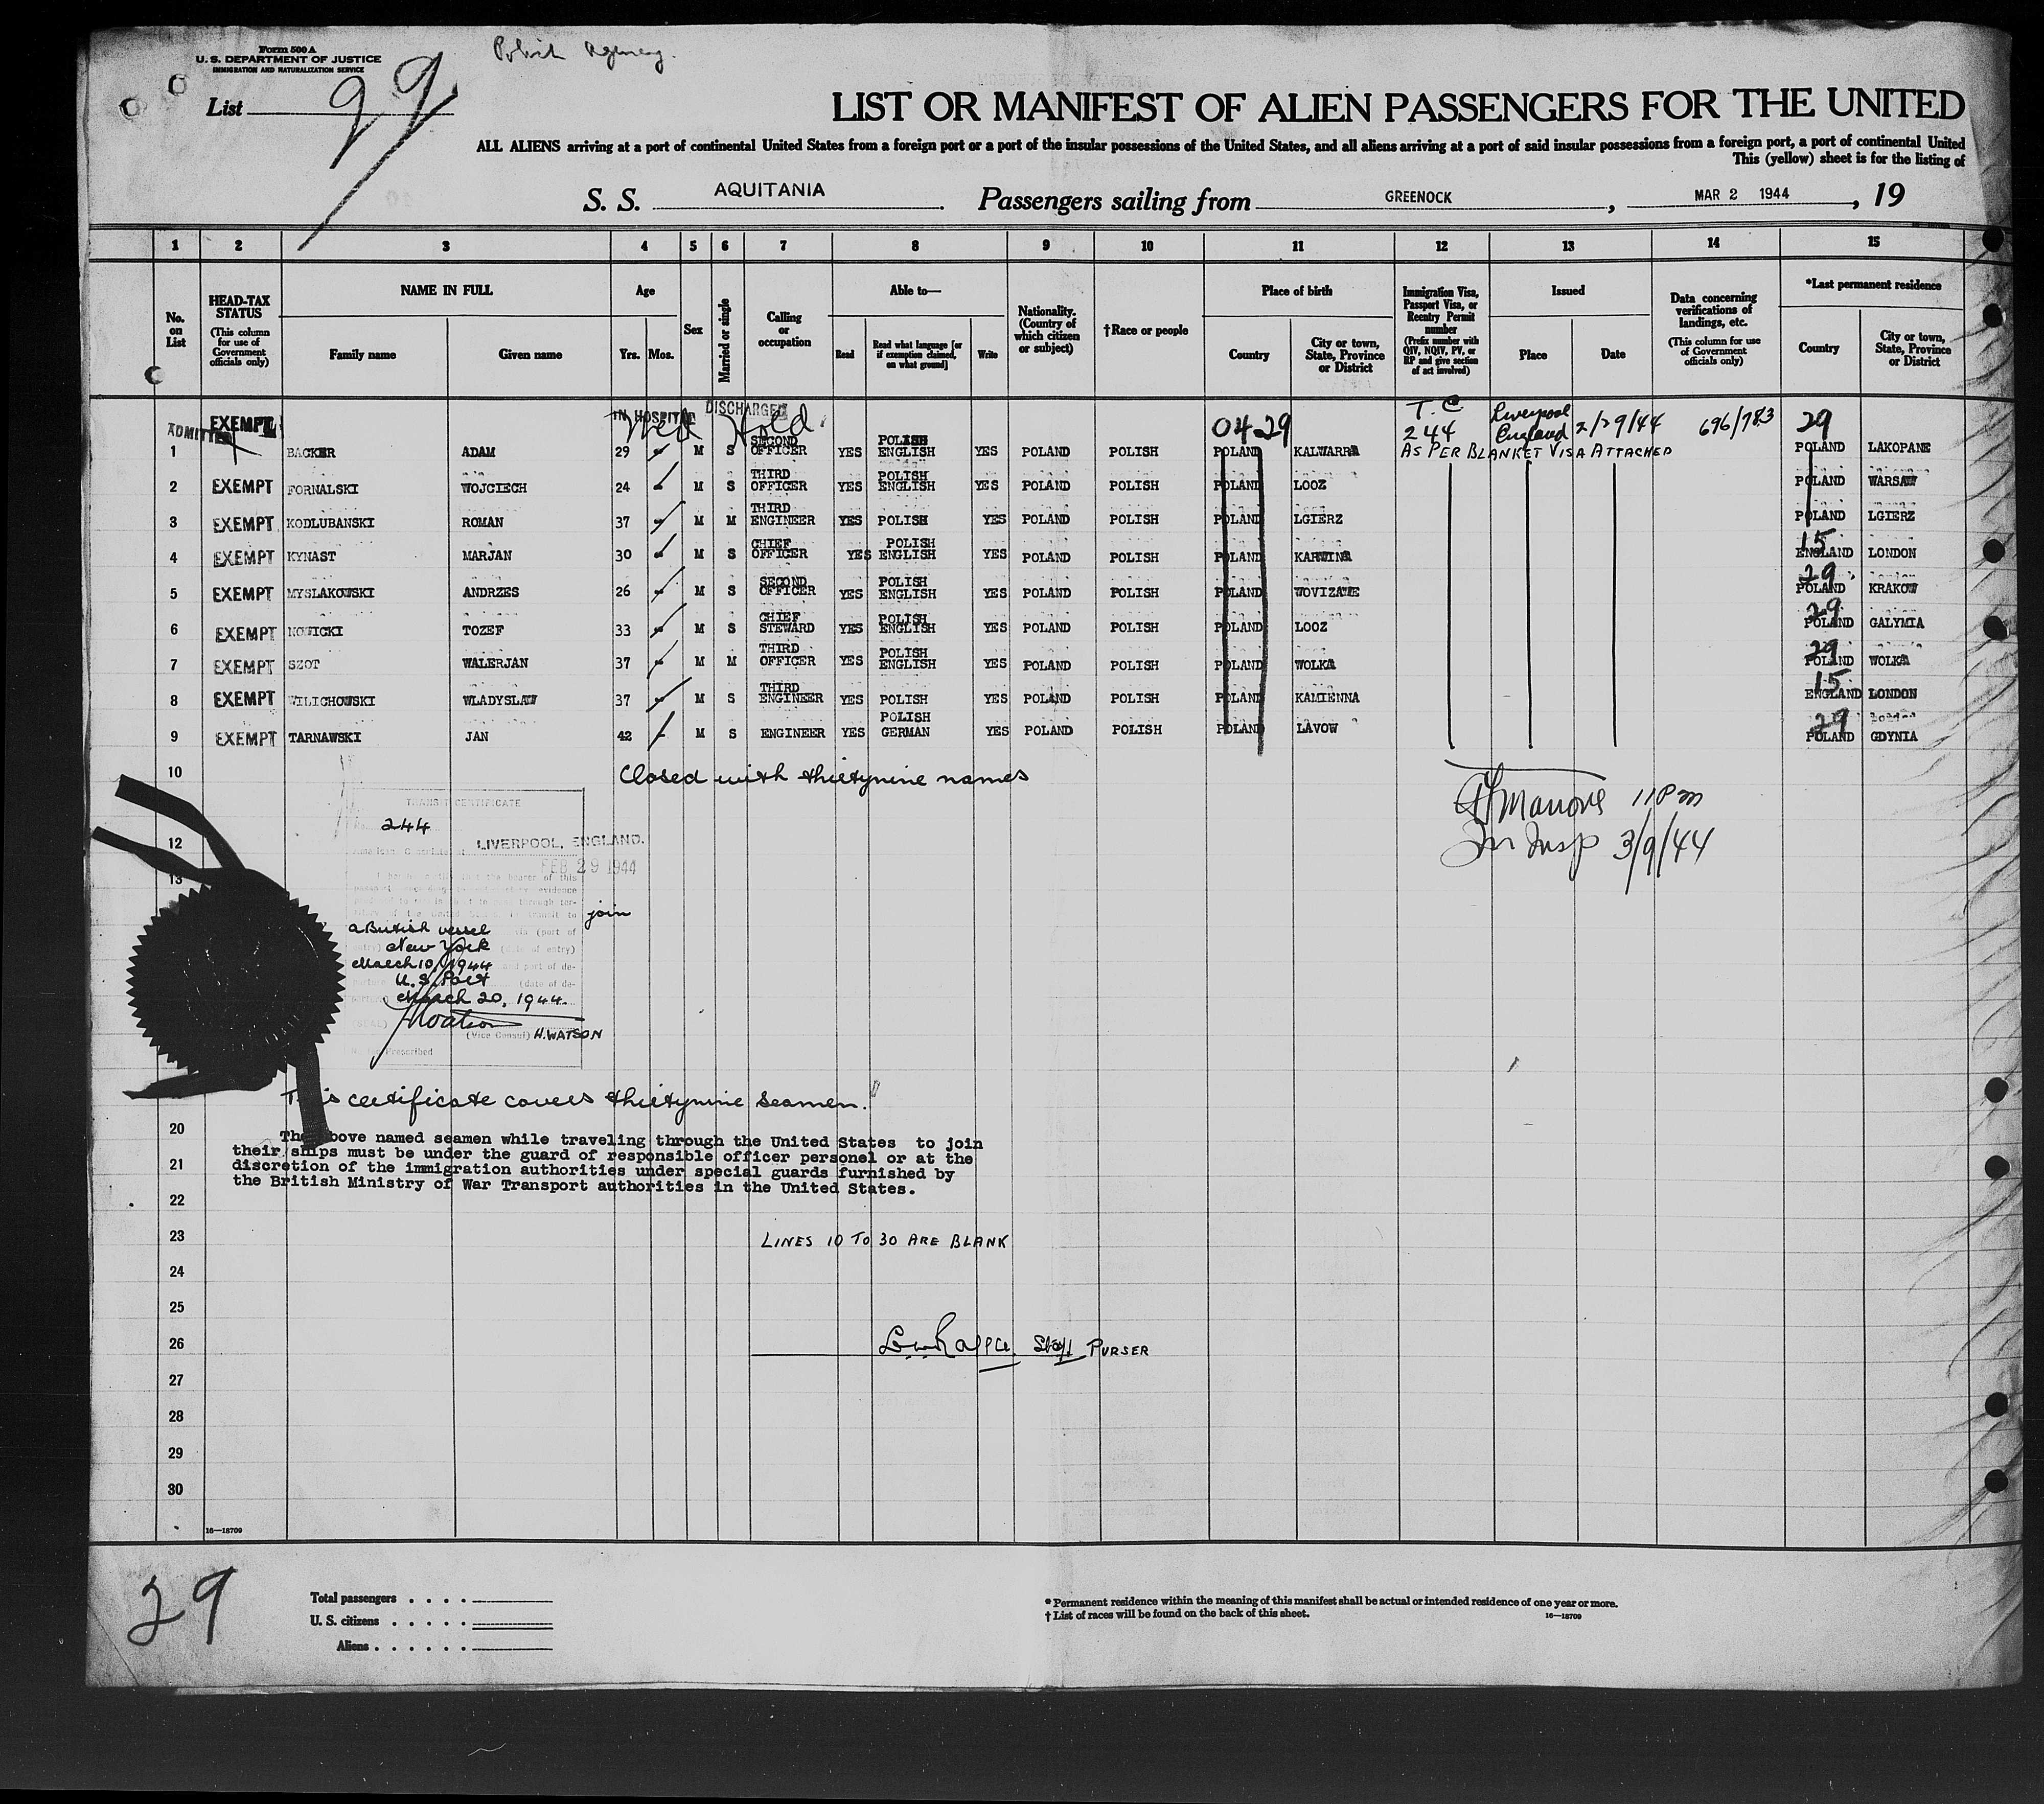 Form 500 A
U. S. DEPARTMENT OF JUSTICE
IMMIGRATION AND NATURALIZATION SERVICE
Polish Agency.
List 29
LIST OR MANIFEST OF ALIEN PASSENGERS FOR THE UNITED
ALL ALIENS arriving at a port of continental United States from a foreign port or a port of the insular possessions of the United States, and all aliens arriving at a port of said insular possessions from a foreign port, a port of continental United
This (yellow) sheet is for the listing of
S. S. AQUITANIA Passengers sailing from GREENOCK , MAR 2 1944 , 19
1 2 3 4 5 6 7 8 9 10 11 12 13 14 15
No. on List
HEAD-TAX STATUS (This column for use of Government officials only)
NAME IN FULL Family name Given name
Age Yrs. Mos.
Sex
Married or single
Calling or occupation
Able to— Read Read what language [or if exemption claimed, on what ground] Write
Nationality. (Country of which citizen or subject)
†Race or people
Place of birth Country City or town, State, Province or District
Immigration Visa, Passport Visa, or Reentry Permit number (Prefix number with QIV, NQIV, PV, or RP and give section of act involved)
Issued Place Date
Data concerning verifications of landings, etc. (This column for use of Government officials only)
*Last permanent residence Country City or town, State, Province or District
ADMITTED EXEMPT IN HOSPITAL DISCHARGED Med Hold 04 29 T.C 244 Liverpool England 2/29/44 696/783 29
1 BACKER ADAM 29 M S SECOND OFFICER YES POLISH ENGLISH YES POLAND POLISH POLAND KALWARRA AS PER BLANKET VISA ATTACHED POLAND LAKOPANE
2 EXEMPT FORNALSKI WOJCIECH 24 M S THIRD OFFICER YES POLISH ENGLISH YES POLAND POLISH POLAND LOOZ POLAND WARSAW
3 EXEMPT KODLUBANSKI ROMAN 37 M M THIRD ENGINEER YES POLISH YES POLAND POLISH POLAND LGIERZ POLAND LGIERZ
4 EXEMPT KYNAST MARJAN 30 M S CHIEF OFFICER YES POLISH ENGLISH YES POLAND POLISH POLAND KARWINA 15 ENGLAND LONDON
5 EXEMPT MYSLAKOWSKI ANDRZES 26 M S SECOND OFFICER YES POLISH ENGLISH YES POLAND POLISH POLAND WOVIZAWE 29 POLAND KRAKOW
6 EXEMPT NOWICKI TOZEF 33 M S CHIEF STEWARD YES POLISH ENGLISH YES POLAND POLISH POLAND LOOZ 29 POLAND GALYMIA
7 EXEMPT SZOT WALERJAN 37 M M THIRD OFFICER YES POLISH ENGLISH YES POLAND POLISH POLAND WOLKA 29 POLAND WOLKA
8 EXEMPT WILICHOWSKI WLADYSLAW 37 M S THIRD ENGINEER YES POLISH YES POLAND POLISH POLAND KAMIENNA 15 ENGLAND LONDON
9 EXEMPT TARNAWSKI JAN 42 M S ENGINEER YES POLISH GERMAN YES POLAND POLISH POLAND LAVOW 29 POLAND GDYNIA
10 Closed with thirtynine names
11 pm
TRANSIT CERTIFICATE
244
12 LIVERPOOL, ENGLAND.
Im Insp 3/9/44
FEB 29 1944
13
join
a British vessel
New York
March 10, 1944
U.S. Port
March 20, 1944.
(Vice Consul) H. WATSON
This certificate covers thirtynine seamen.
20
The above named seamen while traveling through the United States to join
their ships must be under the guard of responsible officer personel or at the
21
discretion of the immigration authorities under special guards furnished by
the British Ministry of War Transport authorities in the United States.
22
23 LINES 10 TO 30 ARE BLANK
24
25
26 Staff PURSER
27
28
29
30
16—18709
29
Total passengers
U. S. citizens
Aliens
* Permanent residence within the meaning of this manifest shall be actual or intended residence of one year or more.
† List of races will be found on the back of this sheet. 16—18709